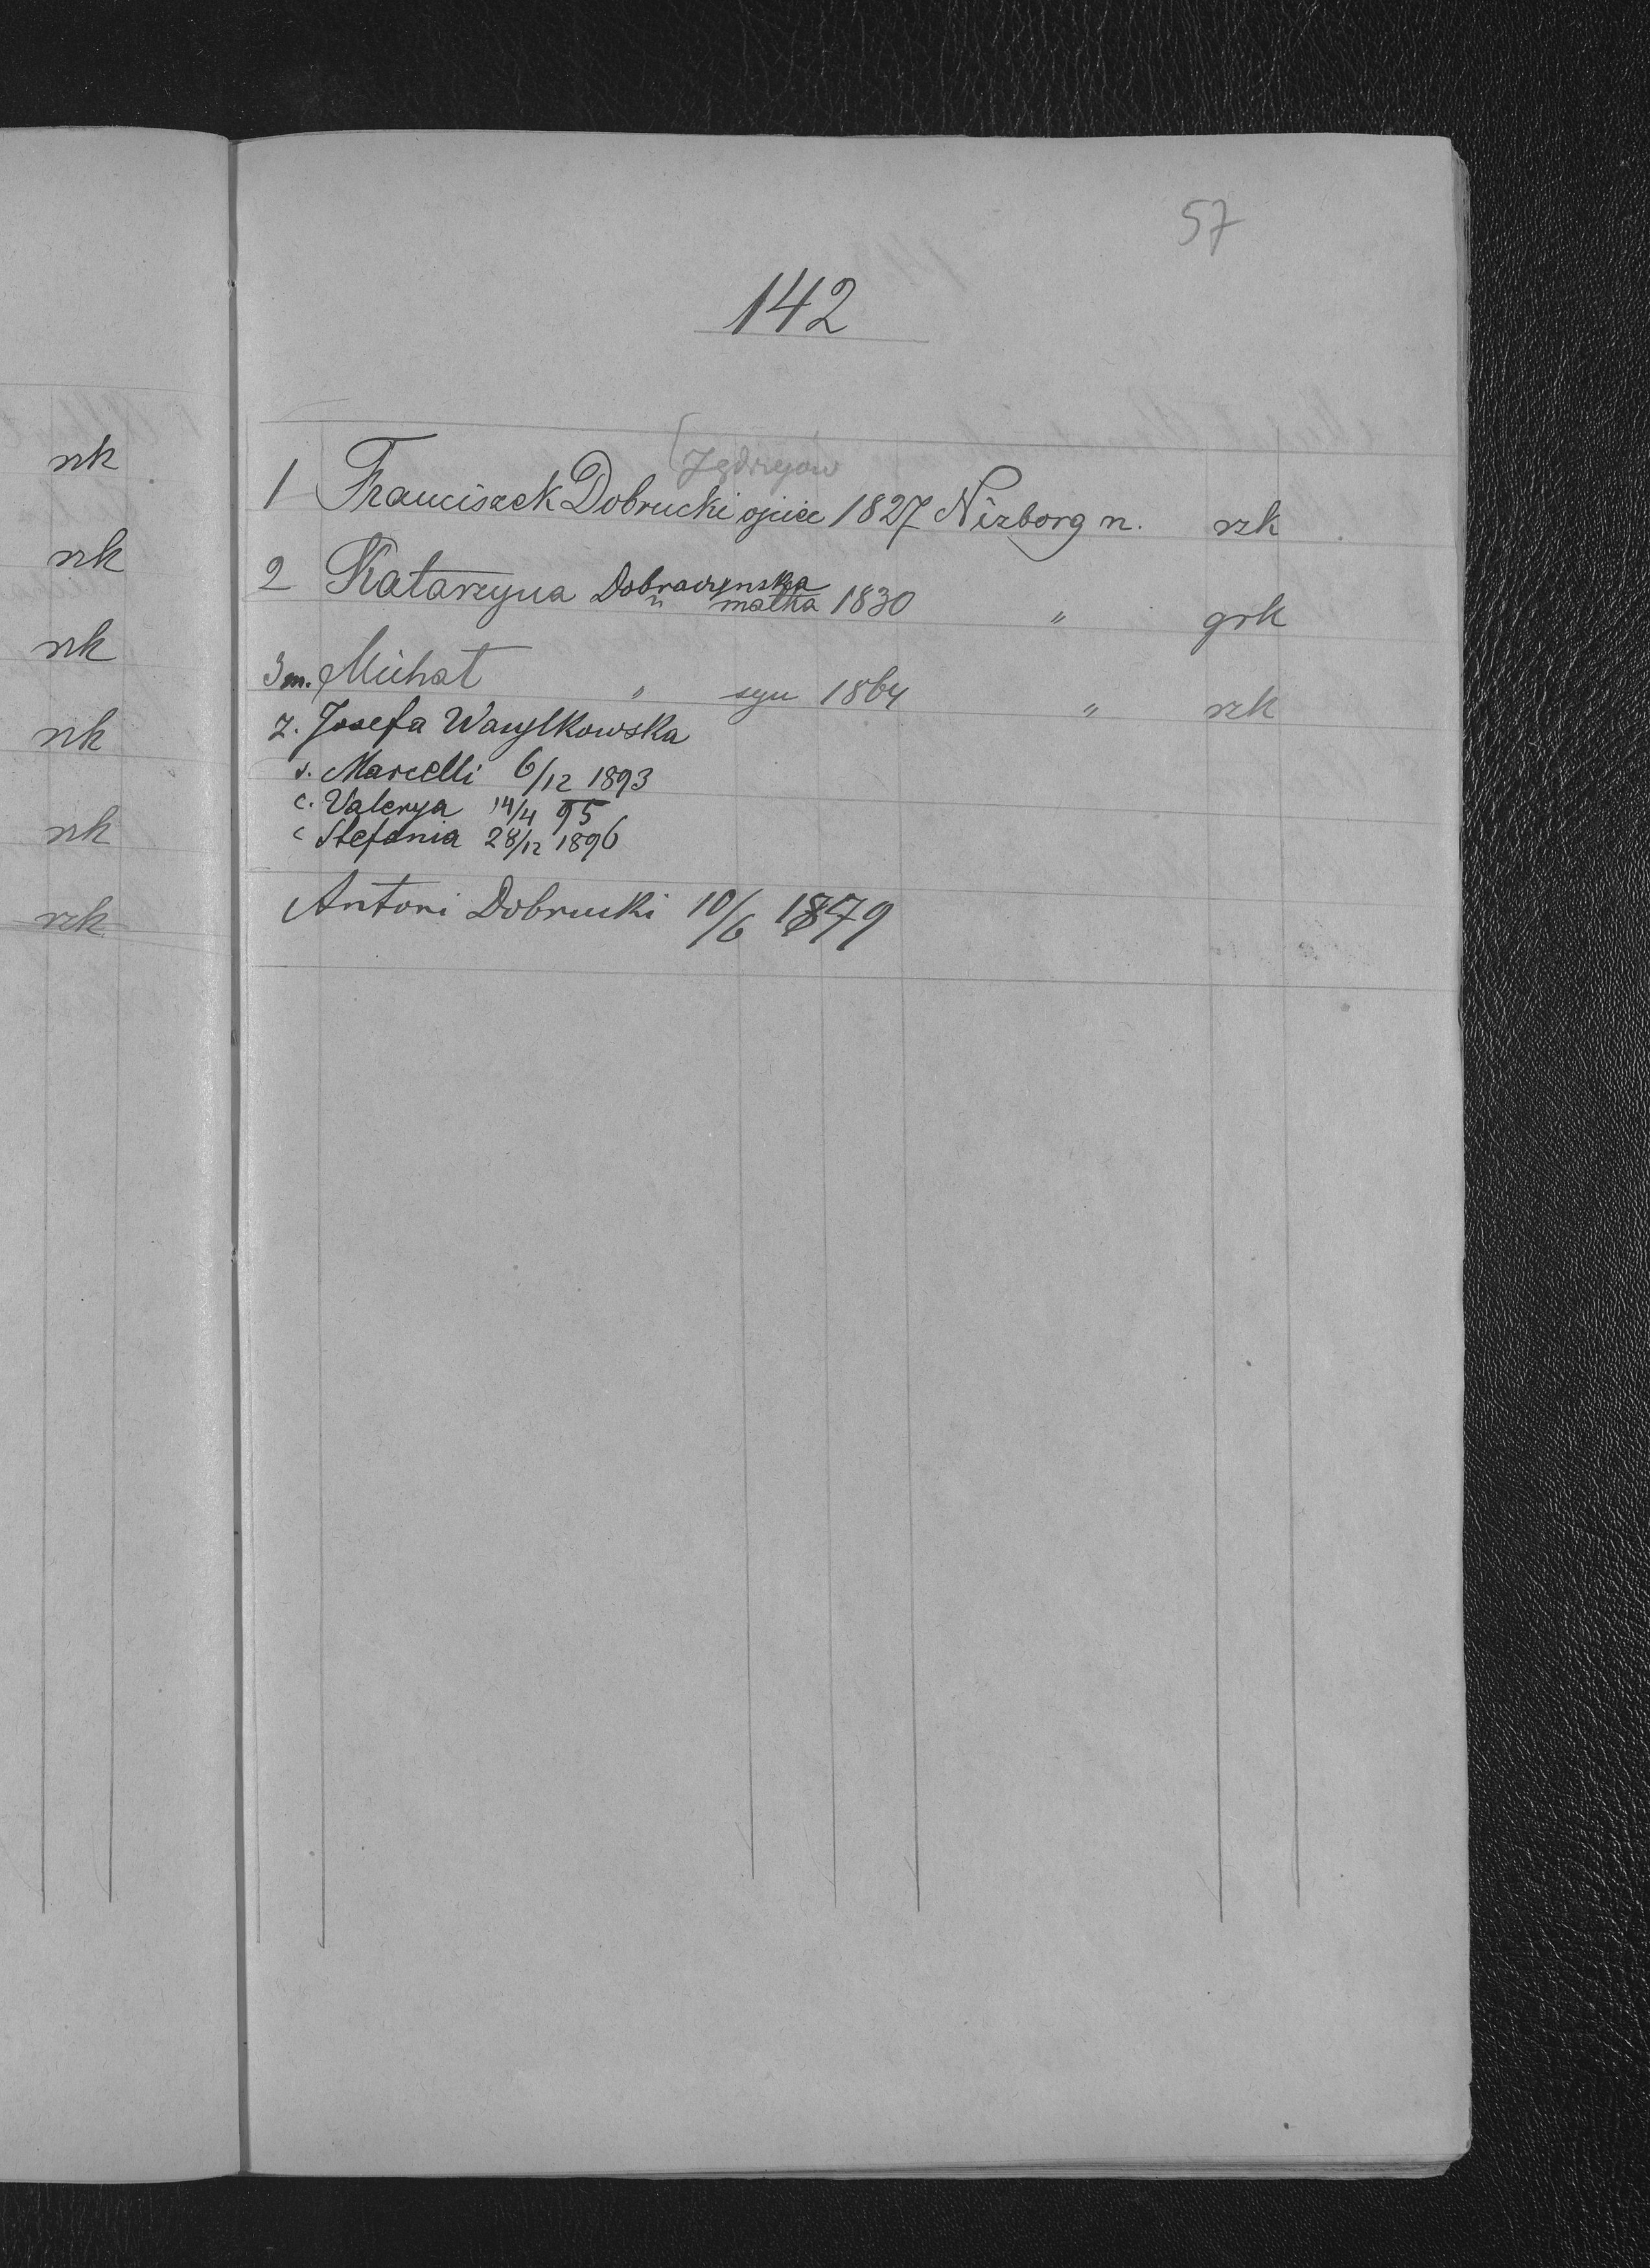 57
142
(Jędrzejów
1 Franciszek Dobrucki ojciec 1827 Niżborg n. rzk
2 Katarzyna Dobraczynska
" matka 1830 " grk
3 m. Michał " syn 1864 " rzk
ż. Josefa Wasylkowska
s. Marcelli 6/12 1893
c. Valerya 14/4 95
c Stefania 28/12 1896
Antoni Dobrucki 10/6 1879
rzk
rzk
rzk
rzk
rzk
rzk